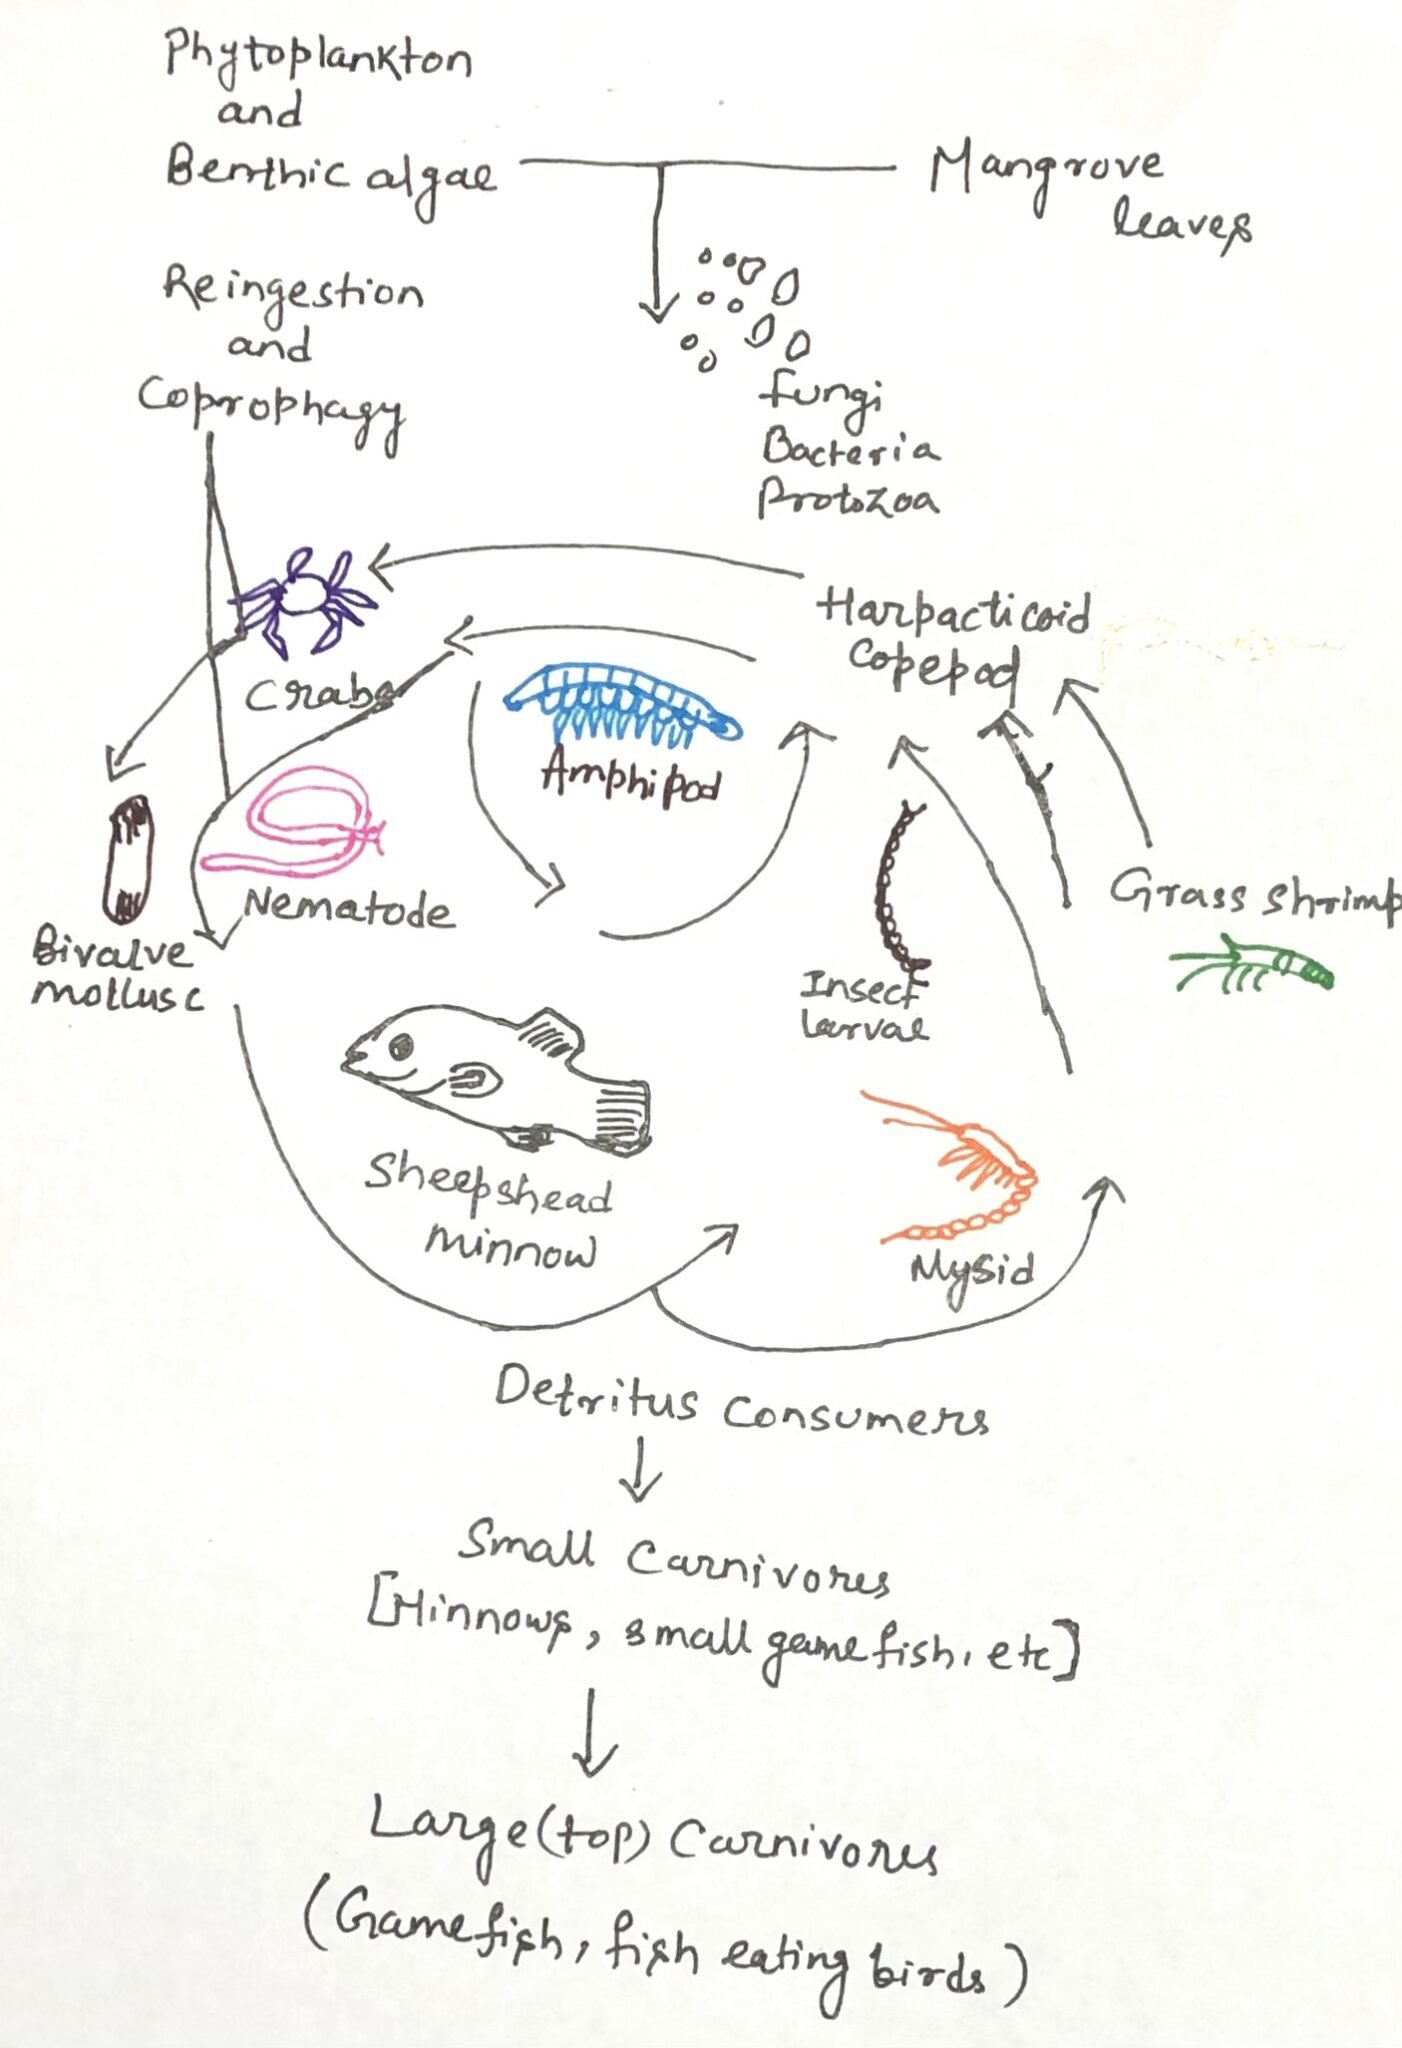 Phytoplankton
and
Benthic algae
Mangrove
leaves
Reingestion
and
Coprophagy
Fungi
Bacteria
Protozoa
Harpacticoid
Copepod
Crabs
Amphipod
Nematode
Grass shrimp
Bivalve
mollusc
Insect
larval
Sheepshead
minnow
Mysid
Detritus consumers
Small Carnivores
[Minnows, small game fish, etc]
Large (top) Carnivores
(Game fish, fish eating birds)